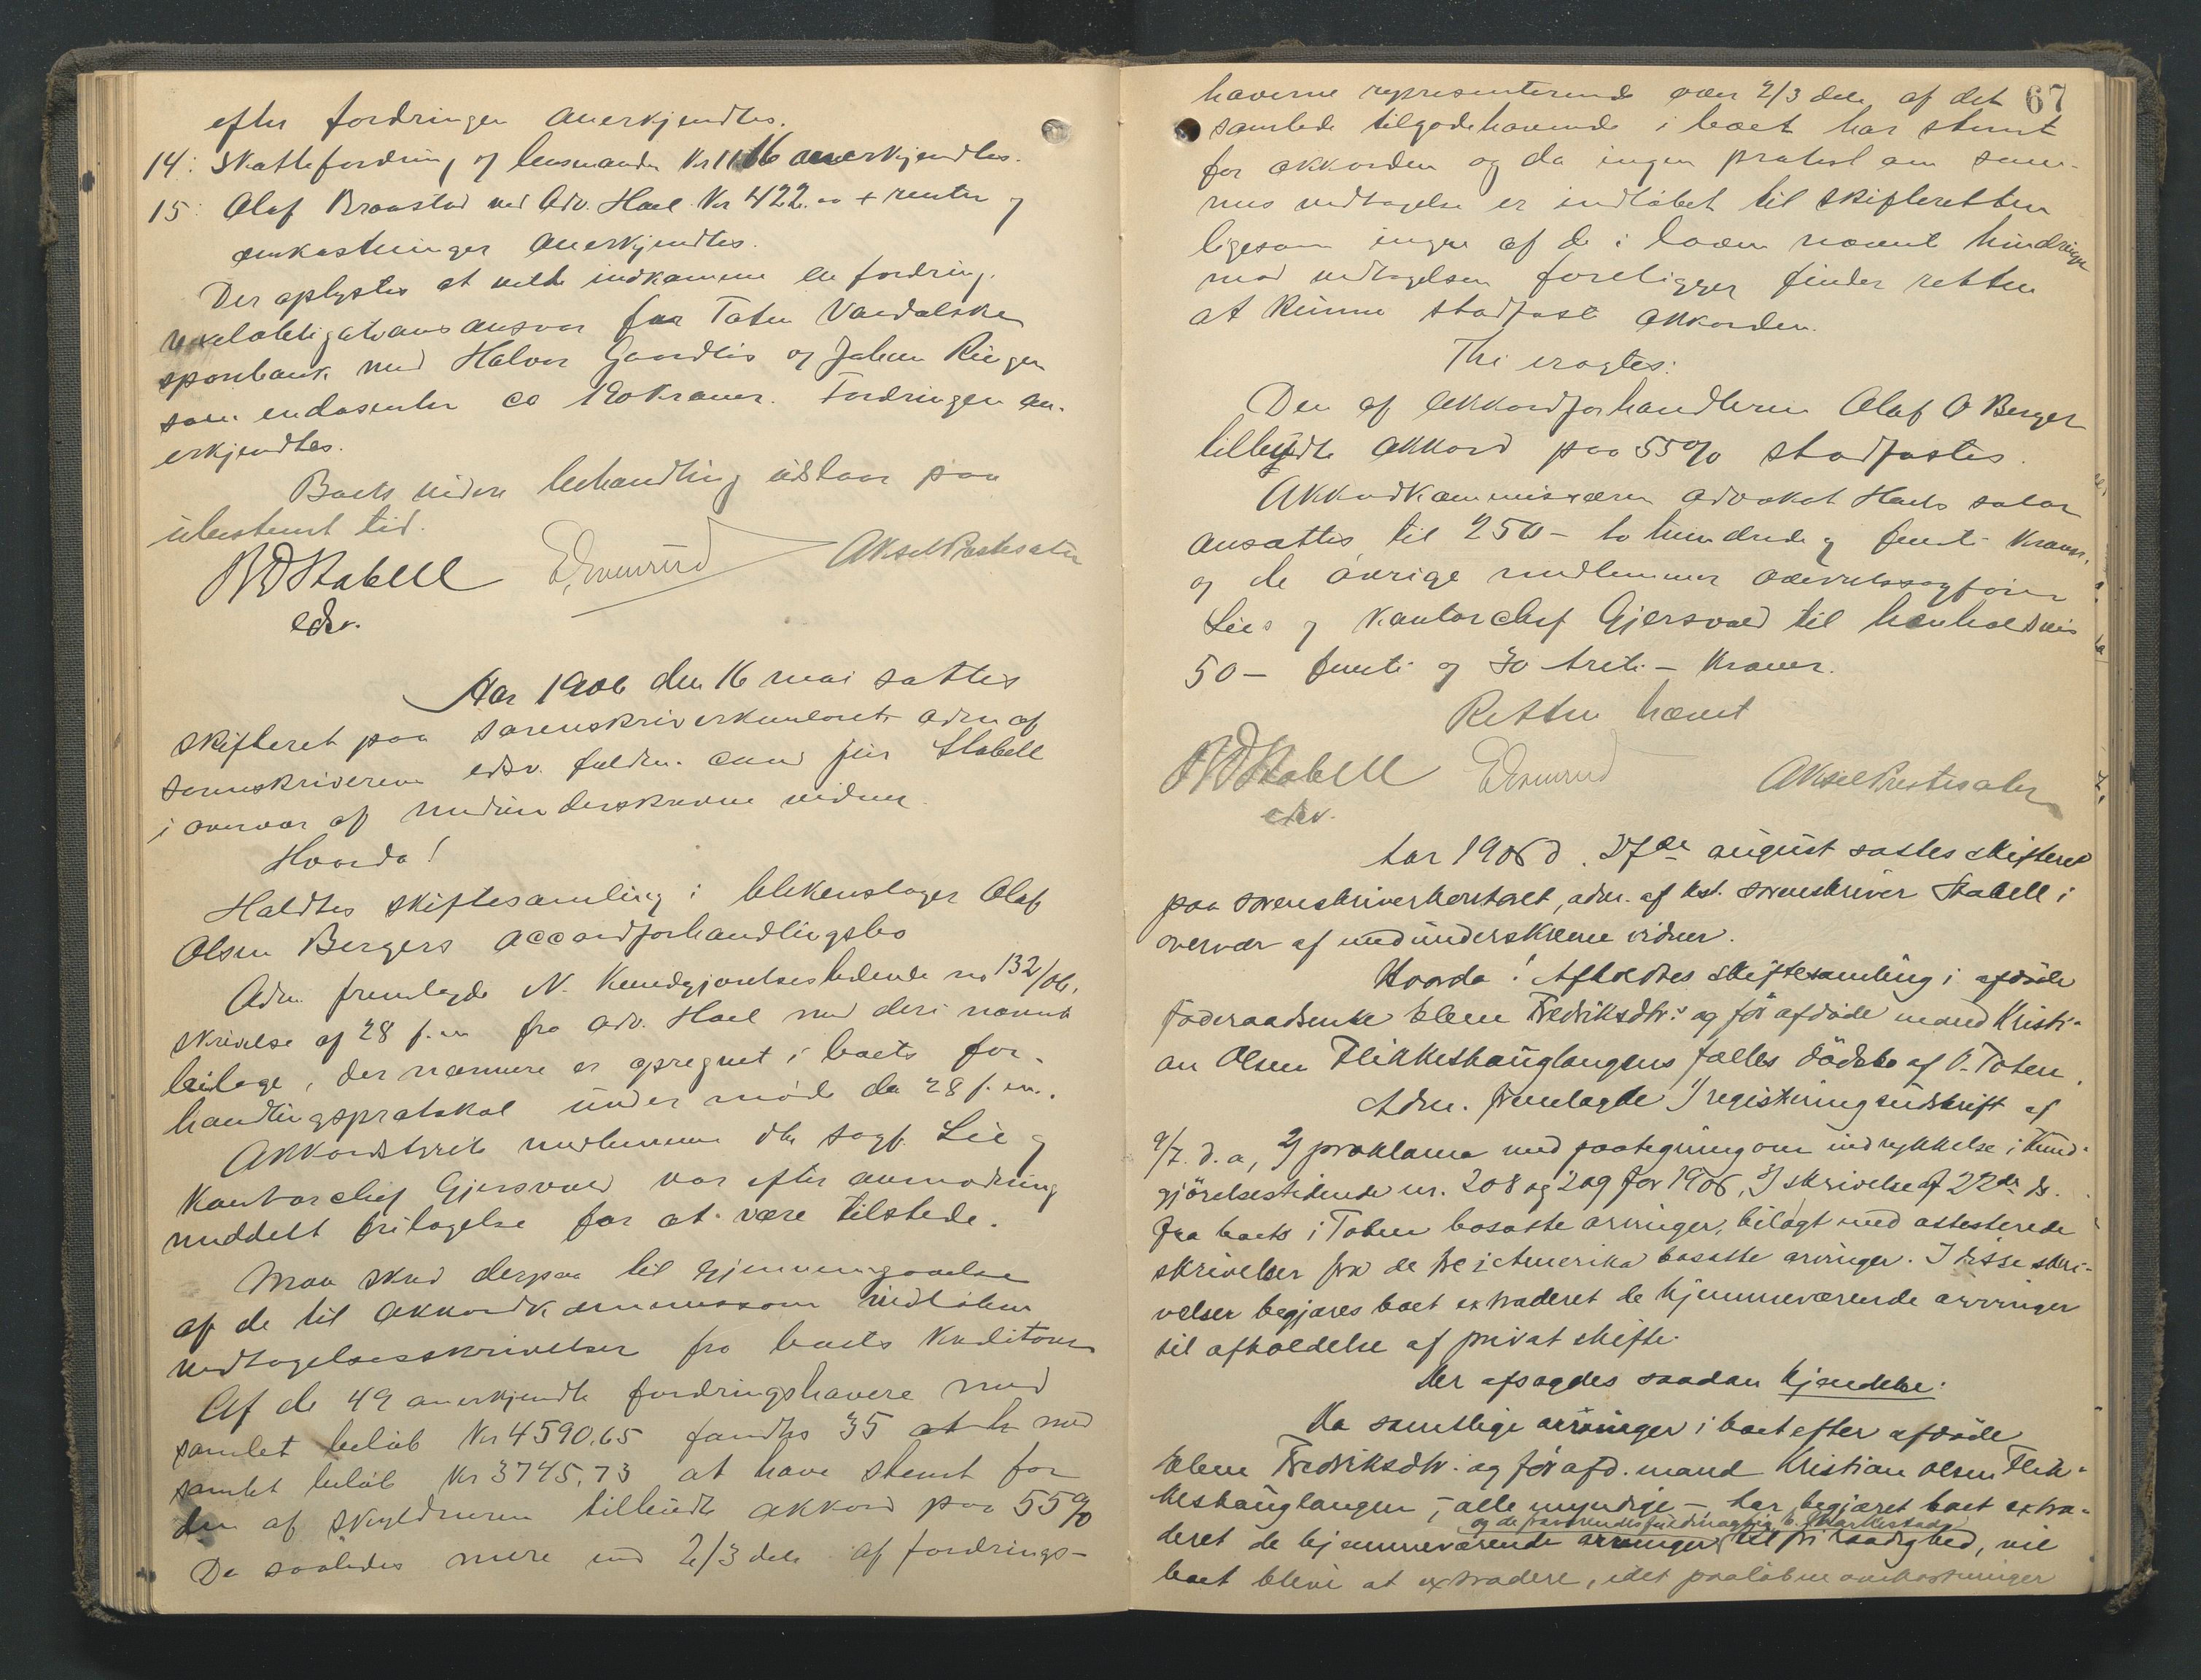 efter fordringen anerkjendtes.
14: Skattefordring og lensmanden Kr 11.16 anerkjendtes.
15: Olaf Braastad ved Adv. Hoel Kr 422.00 + renter og
omkostninger anerkjendtes.
Der oplystes at vilde indkomme en fordring
vexelobligationsansvar for Toten Vardalske
sparebank med Halvor Gaardlos og Johan Ringen
som endosenter ca 190 kroner. Fordringen an-
erkjendtes.
Boets videre behandling udstaar paa
ubestemt tid.
Stabell
edsv.
Aksel Prestesater
Aar 1906 den 16 mai sattes
skifteret paa sorenskriverkontoret adm af
sorenskriverens edsv. fuldm. cand jur Stabell
i overvær af medunderskrevne vidner.
Hvorda!
Holdtes skiftesamling i blikenslager Olaf
Olsen Bergers accordforhandlingsbo
Adm fremlagde N. Kundgjørelsestidende no 132/06,
skrivelse af 28 f.m fra adv. Hoel med deri nævnte
bilage, der nærmere er opregnet i boets for-
handlingsprotokol under møde den 28 f.m.
Akkordstyrets medlemmer Ovr sagf. Lie og
Kontorchef Gjersvold var efter anmodning
meddelt fritagelse for at være tilstede.
Man skred derpaa til gjennemgaaelse
af de til akkordkommissæren indløbne
vedtagelsesskrivelser fra boets kreditorer
Af de 49 anerkjendte fordringshavere med
samlet beløb Kr 4590.65 fandtes 35 at med
samlet beløb Kr 3745.73 at have stemt for
den af skyldneren tilbudte akkord paa 55%
Da saaledes mere end 2/3 dele af fordrings-
67
haverne representerende over 2/3 dele af det
samlede tilgodehavende i boet har stemt
for akkorden og da ingen protest om sam-
mes vedtagelse er indløbet til skifteretten
ligesom ingen af de i loven nævnte hindringer
mod vedtagelsen foreligger finder retten
at kunne stadfæste akkorden.
Thi eragtes:
Den af akkordforhandleren Olaf O Berger
tilbydte akkord paa 55% stadfæstes.
Akkordkommissæren advokat Hoels salær
ansættes til 250 - to hundrede og femti kroner,
og de øvrige medlemmer overretssagfører
Lies og Kontorchef Gjersvold til henholdsvis
50 - femti og 30 treti - kroner.
Retten hævet
Stabell
edsv.
Aksel Prestesater
Aar 1906 d. 27de august sattes skifteret
paa sorenskriverkontoret, adm. af kst. sorenskriver Stabell i
overvær af medunderskrevne vidner.
Hvorda! Afholdtes skiftesamling i afdøde
føderaadsenke Elene Fredriksdtr: og før afdøde mand Kristi-
an Olsen Flikkeshauglangens fælles dødsbo af Ø. Toten.
Adm. fremlagde 1) registreringsudskrift af
9/7. d. a, 2) proklama med paategning om indrykkelse i Kund-
gjørelsestidende nr. 208 og 209 for 1906, 3) skrivelse af 22de ds.
fra boets i Toten bosatte arvinger, bilagt med attesterede
skrivelser fra de tre i Amerika bosatte arvinger. I disse skri-
velser begjæres boet extraderet de hjemmeværende arvinger
til afholdelse af privat skifte.
Der afsagdes saadan kjendelse:
Da samtlige arvinger i boet efter afdøde
Elene Fredriksdtr. og før afd. mand Kristian Olsen Flik-
keshauglangen, - alle myndige - har begjæret boet extra-
og de fraværendes fuldmægtig
deret de hjemmeværende arvinger til fri raadighed, vil
boet blive at extradere, idet paaløbne omkostninger